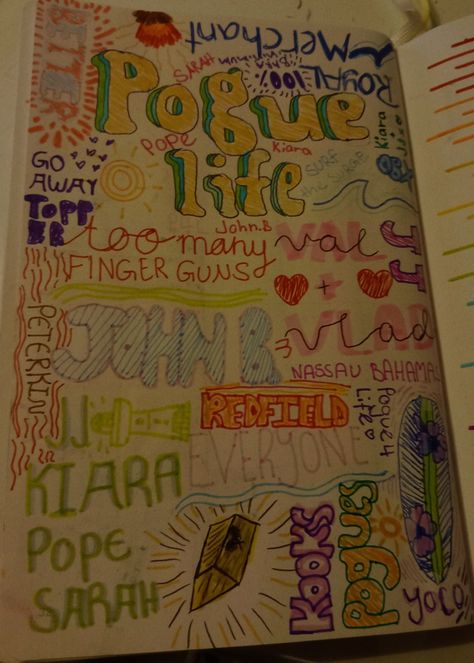 BETTER
Merchant
SARAH
ROYAL
100%
Pogue
life
POPE
Kiara
Kiara
SURF
the SURGE
GO
AWAY
TOPP
ER
John.B
too many
FINGER GUNS
VAL
val
JJ
+
VLAD
vlad
PETERKIN
JOHN B
NASSAU BAHAMAS
REDFIELD
Pogue 4
Life
JJ
EVERYONE
KIARA
POPE
SARAH
KOOKS
pogues
YOLO